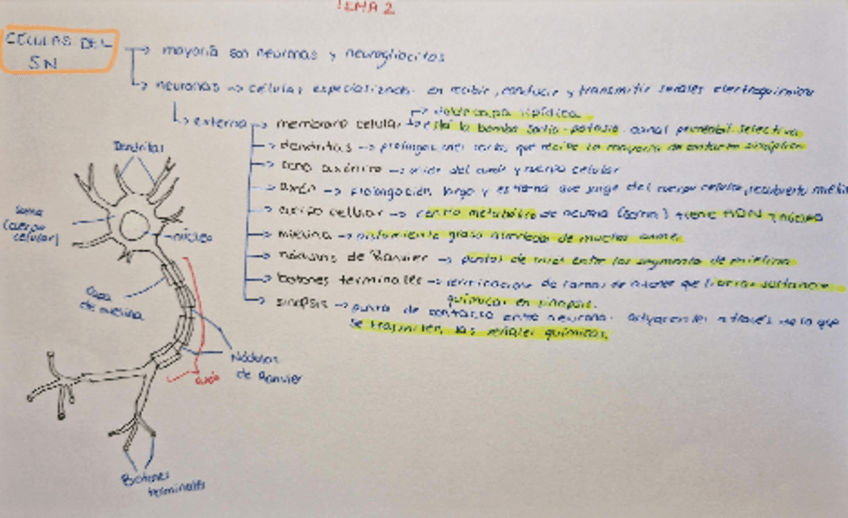 TEMA 2
CÉLULAS DEL
SN
→ mayoría son neuronas y neurogliocitos
→ neuronas → células especializada en recibir, conducir y transmitir señales electroquímicas
→ externa
→ membrana celular → doble capa lipídica
→ está la bomba sodio-potasio canal permeabil. selectiva
→ dendritas → prolongaciones cortas que recibe la mayoría de contactos sinápticos
→ cono axónico → del axón y cuerpo celular
→ axón → prolongación largo y que surge del cuerpo celular, recubierto
→ cuerpo cellular → centro metabólico de neurona (soma) tiene ADN
→ mielina → aislamiento graso alrededor de muchos axones
→ nódulos de Ranvier → puntos de unión entre los segmentos de mielina
→ botones terminales → terminaciones de ramas de axones que liberan sustancias
químicas en sinapsis.
→ sinapsis → punto de contacto entre neuronas adyacentes a través de la que
se trasmiten las señales químicas.
Dendritas
Soma
(cuerpo
celular)
núcleo
Capa
de mielina
Nódulos
de Ranvier
axón
Botones
terminales